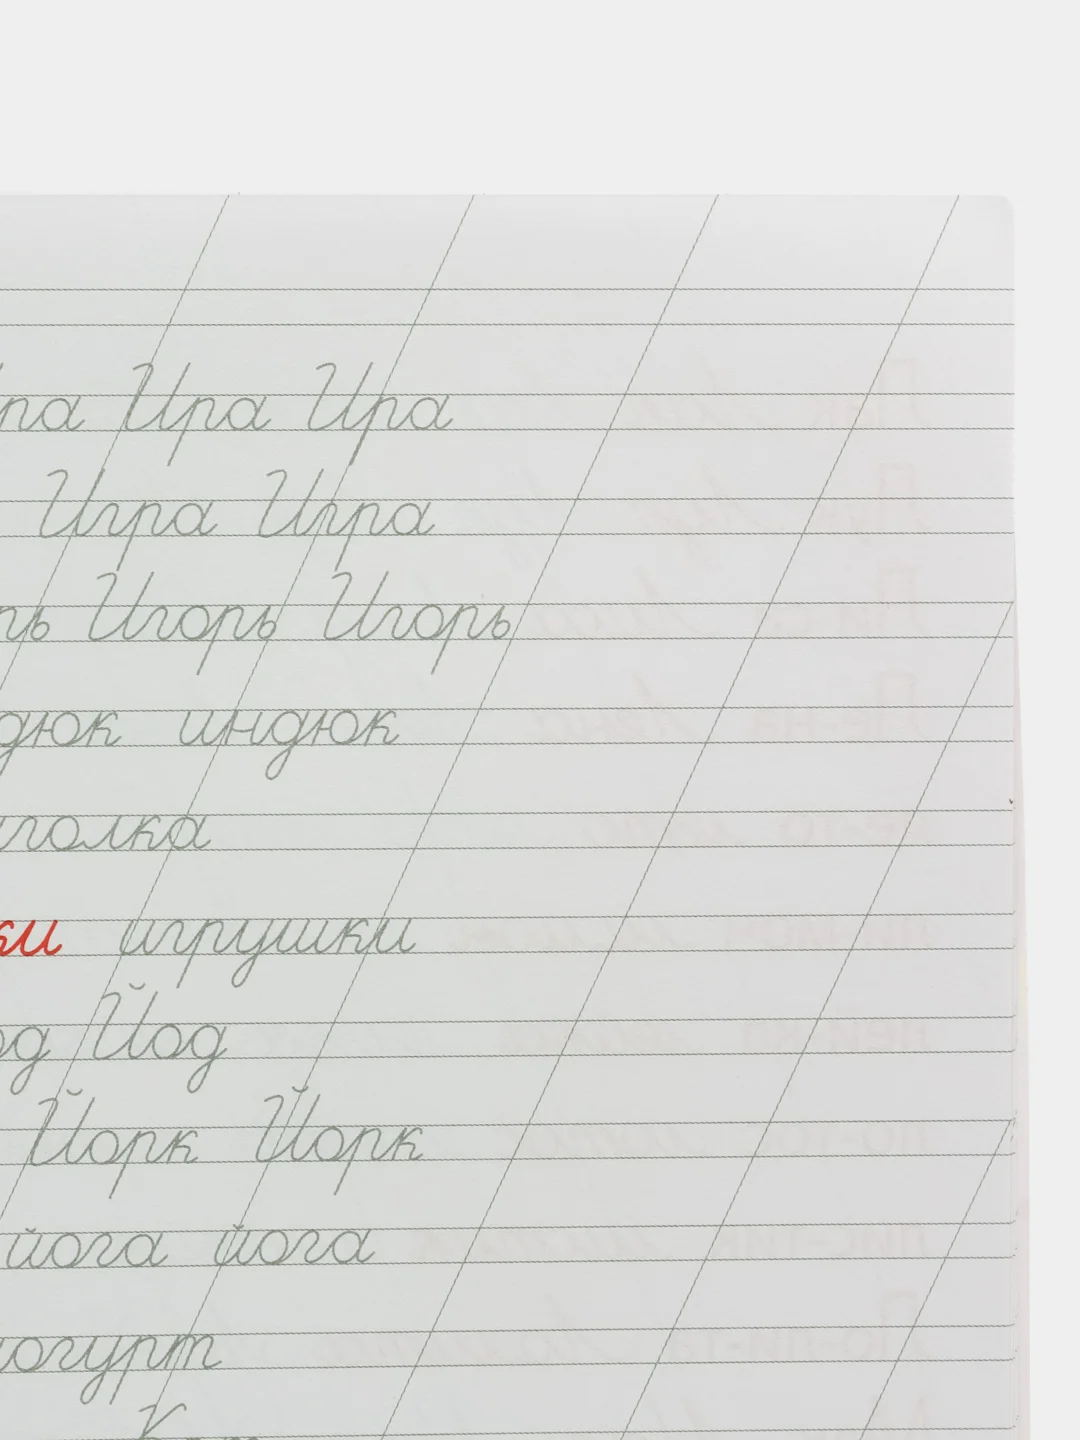 ра Ира Ира
Игра Игра
рь Игорь Игорь
дюк индюк
иголка
ки игрушки
од Йод
Йорк Йорк
йога йога
йогурт